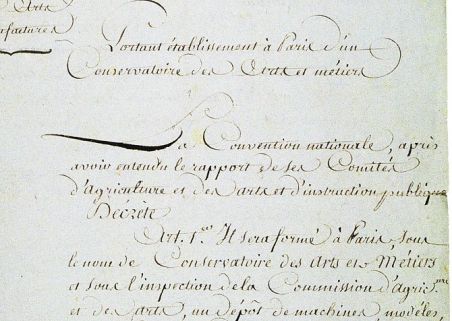 Arts
Portant établissement à Paris d'un
Conservatoire des Arts et métiers
La Convention nationale, après
avoir entendu le rapport de ses Comités
d'agriculture et des arts et d'instruction publique
Décrète
Art. 1.er Il sera formé à Paris, sous
le nom de Conservatoire des Arts et Métiers
et sous l'inspection de la Commission d'agric.ure
et des Arts, un dépôt de machines, modèles,